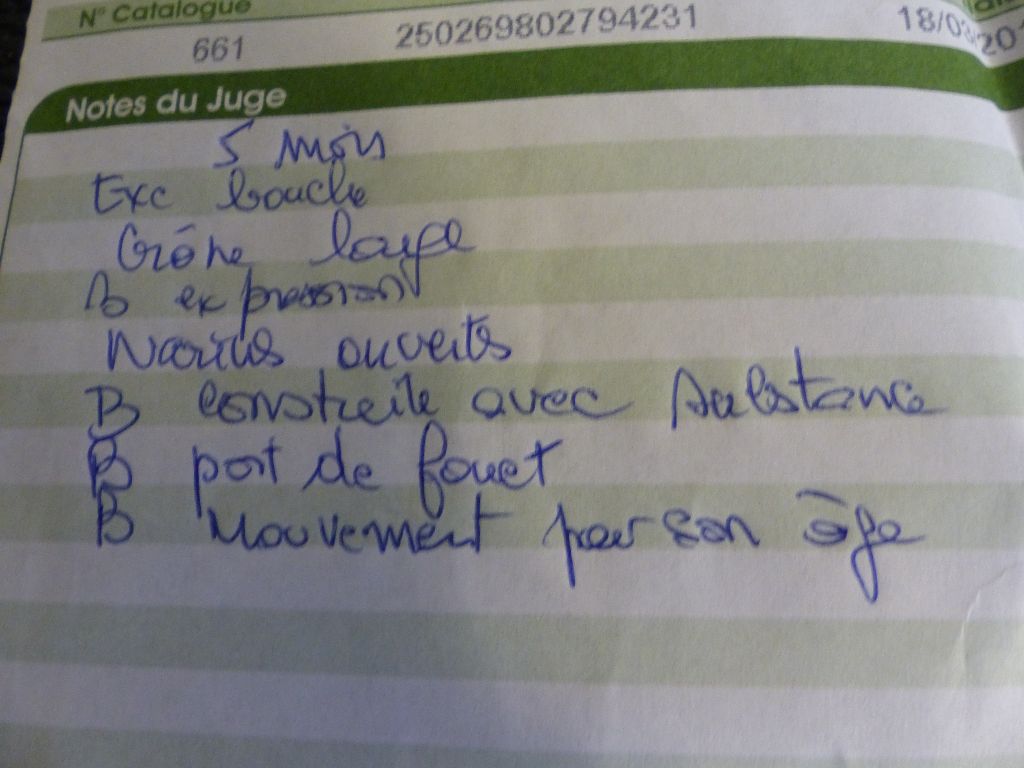 N° Catalogue
661 250269802794231 18/03/201
Notes du Juge
5 mois
Exc bouche
Crâne large
B expression
Narines ouvertes
B construite avec substance
B port de fouet
B mouvement pour son âge